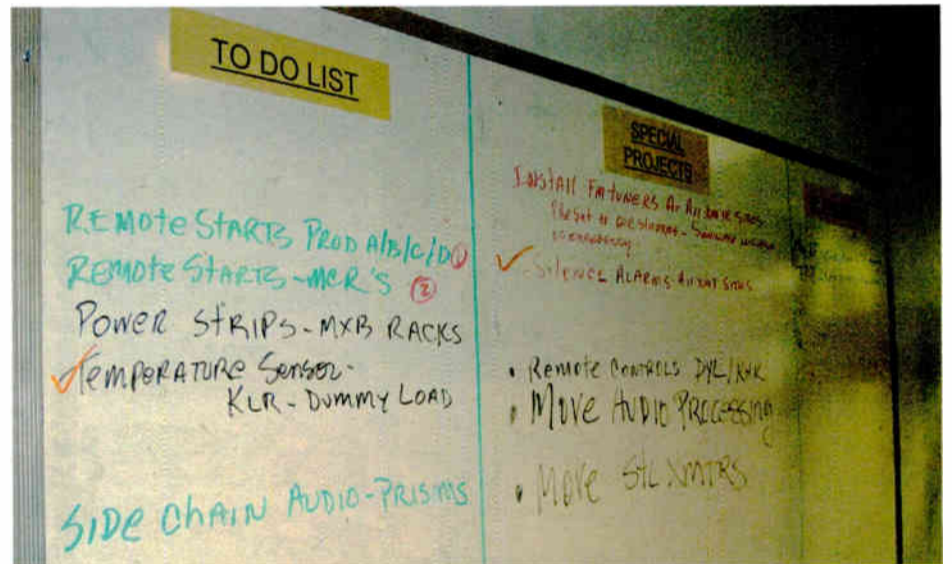 TO DO LIST
REMOTE STARTS PROD A/B/C/D ①
REMOTE STARTS-MCR'S ②
POWER STRIPS-MXB RACKS
✓TEMPERATURE SENSOR-
KLR-DUMMY LOAD
SIDE CHAIN AUDIO-PRISMS
SPECIAL
PROJECTS
INSTALL FM TUNERS AT
✓ SILENCE ALARMS
• REMOTE CONTROLS DYL/
• MOVE AUDIO PROCESSING
• MOVE STL XMTRS